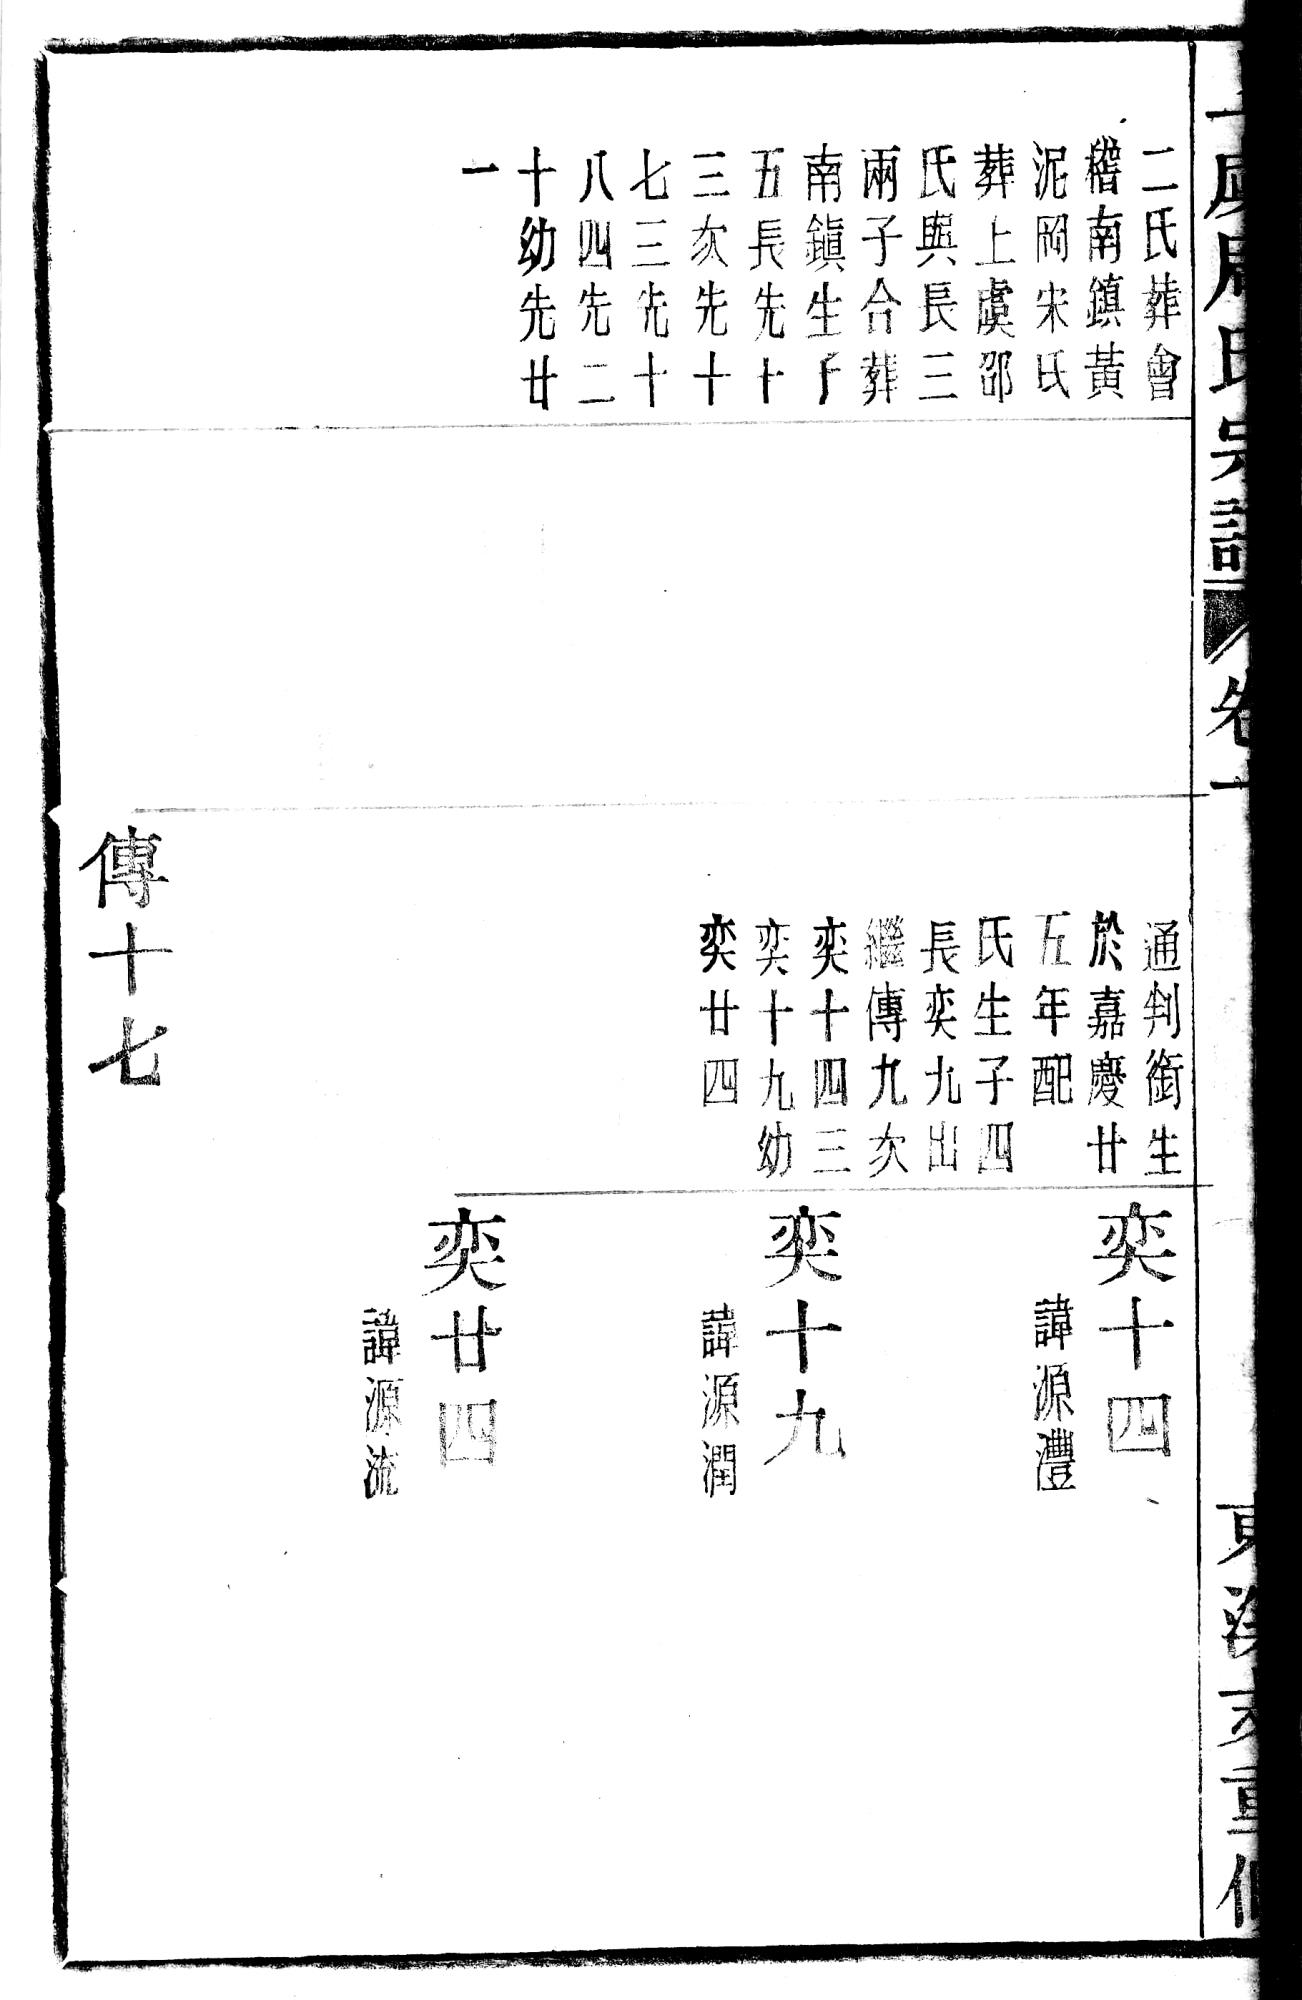 上虞周氏宗譜
卷十
東溪支重修
二氏葬會
稽南鎮黃
泥岡宋氏
葬上虞邵
氏與長三
兩子合葬
南鎭生子
五長先十
三次先十
七三先十
八四先二
十幼先廿
一
通判銜生
於嘉慶廿
五年配
氏生子四
長奕九出
繼傳九次
奕十四三
奕十九幼
奕廿四
傳十七
奕十四
諱源灃
奕十九
諱源潤
奕廿四
諱源流